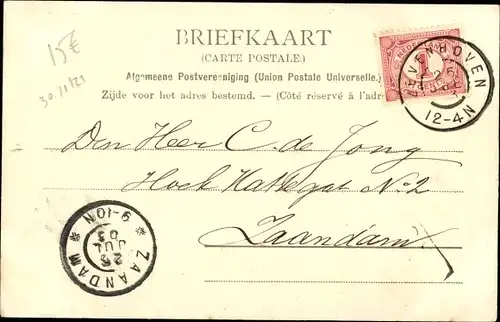 15€
30/11/21
BRIEFKAART
(CARTE POSTALE.)
Algemeene Postvereeniging (Union Postale Universelle.)
Zijde voor het adres bestemd. — (Côté réservé à l'adr
1
VENHOVEN
12-4N
Den Heer C. de Jong
Hoek Kattegat No 2
Zaandam.
* ZAANDAM *
25
JUL
03
9-10N